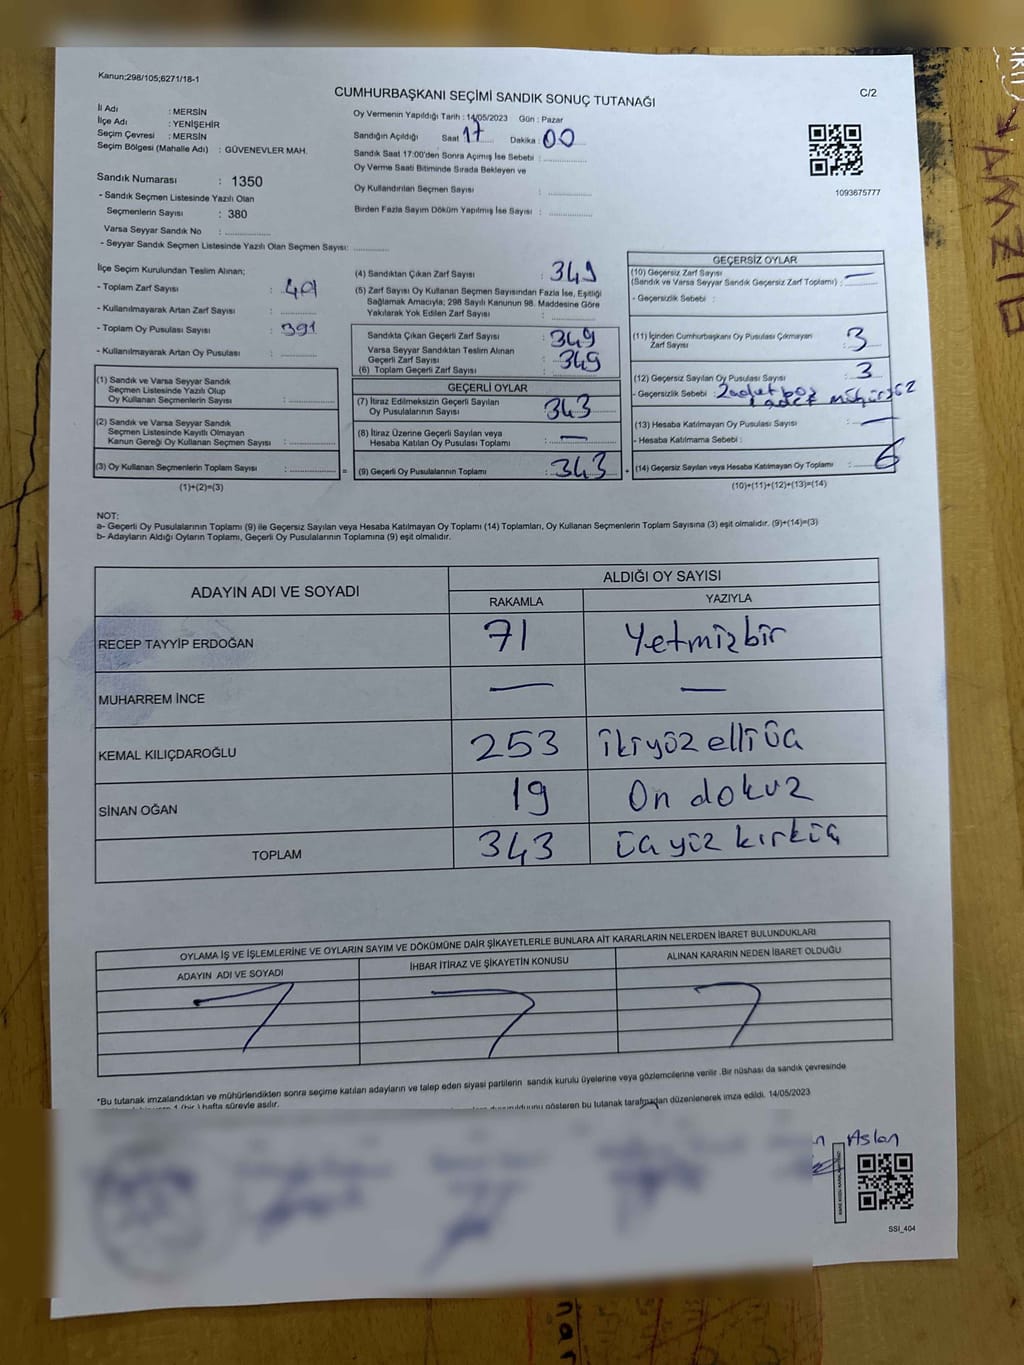 Kanun;298/105;6271/18-1
CUMHURBAŞKANI SEÇİMİ SANDIK SONUÇ TUTANAĞI
C/2
İl Adı : MERSİN
İlçe Adı : YENİŞEHİR
Seçim Çevresi : MERSİN
Seçim Bölgesi (Mahalle Adı) : GÜVENEVLER MAH.
Sandık Numarası : 1350
- Sandık Seçmen Listesinde Yazılı Olan
Seçmenlerin Sayısı : 380
Varsa Seyyar Sandık No :
- Seyyar Sandık Seçmen Listesinde Yazılı Olan Seçmen Sayısı:
Oy Vermenin Yapıldığı Tarih : 14/05/2023 Gün : Pazar
Sandığın Açıldığı Saat 17 Dakika : 00
Sandık Saat 17:00'den Sonra Açımış İse Sebebi :
Oy Verme Saati Bitiminde Sırada Bekleyen ve
Oy Kullandırılan Seçmen Sayısı :
Birden Fazla Sayım Döküm Yapılmış İse Sayısı :
1093675777
İlçe Seçim Kurulundan Teslim Alınan;
- Toplam Zarf Sayısı : 401
- Kullanılmayarak Artan Zarf Sayısı :
- Toplam Oy Pusulası Sayısı : 391
- Kullanılmayarak Artan Oy Pusulası :
(1) Sandık ve Varsa Seyyar Sandık
Seçmen Listesinde Yazılı Olup
Oy Kullanan Seçmenlerin Sayısı :
(2) Sandık ve Varsa Seyyar Sandık
Seçmen Listesinde Kayıtlı Olmayan
Kanun Gereği Oy Kullanan Seçmen Sayısı :
(3) Oy Kullanan Seçmenlerin Toplam Sayısı : =
(1)+(2)=(3)
(4) Sandıktan Çıkan Zarf Sayısı : 349
(5) Zarf Sayısı Oy Kullanan Seçmen Sayısından Fazla İse, Eşitliği
Sağlamak Amacıyla; 298 Sayılı Kanunun 98. Maddesine Göre
Yakılarak Yok Edilen Zarf Sayısı :
Sandıkta Çıkan Geçerli Zarf Sayısı : 349
Varsa Seyyar Sandıktan Teslim Alınan
Geçerli Zarf Sayısı :
(6) Toplam Geçerli Zarf Sayısı : 349
GEÇERLİ OYLAR
(7) İtiraz Edilmeksizin Geçerli Sayılan
Oy Pusulalarının Sayısı : 343
(8) İtiraz Üzerine Geçerli Sayılan veya
Hesaba Katılan Oy Pusulası Toplamı : —
(9) Geçerli Oy Pusulalarının Toplamı : 343 +
GEÇERSİZ OYLAR
(10) Geçersiz Zarf Sayısı
(Sandık ve Varsa Seyyar Sandık Geçersiz Zarf Toplamı) : —
- Geçersizlik Sebebi :
(11) İçinden Cumhurbaşkanı Oy Pusulası Çıkmayan
Zarf Sayısı : 3
(12) Geçersiz Sayılan Oy Pusulası Sayısı : 3
- Geçersizlik Sebebi : 2adet boş
1 adet
(13) Hesaba Katılmayan Oy Pusulası Sayısı : —
- Hesaba Katılmama Sebebi :
(14) Geçersiz Sayılan veya Hesaba Katılmayan Oy Toplamı : 6
(10)+(11)+(12)+(13)=(14)
NOT:
a- Geçerli Oy Pusulalarının Toplamı (9) ile Geçersiz Sayılan veya Hesaba Katılmayan Oy Toplamı (14) Toplamları, Oy Kullanan Seçmenlerin Toplam Sayısına (3) eşit olmalıdır. (9)+(14)=(3)
b- Adayların Aldığı Oyların Toplamı, Geçerli Oy Pusulalarının Toplamına (9) eşit olmalıdır.
ADAYIN ADI VE SOYADI
ALDIĞI OY SAYISI
RAKAMLA YAZIYLA
RECEP TAYYİP ERDOĞAN 71 Yetmizbir
MUHARREM İNCE — —
KEMAL KILIÇDAROĞLU 253 ikiyüz elli üç
SİNAN OĞAN 19 On dokuz
TOPLAM 343 üç yüz kırküç
OYLAMA İŞ VE İŞLEMLERİNE VE OYLARIN SAYIM VE DÖKÜMÜNE DAİR ŞİKAYETLERLE BUNLARA AİT KARARLARIN NELERDEN İBARET BULUNDUKLARI
ADAYIN ADI VE SOYADI İHBAR İTİRAZ VE ŞİKAYETİN KONUSU ALINAN KARARIN NEDEN İBARET OLDUĞU
*Bu tutanak imzalandıktan ve mühürlendikten sonra seçime katılan adayların ve talep eden siyasi partilerin sandık kurulu üyelerine veya gözlemcilerine verilir .Bir nüshası da sandık çevresinde
1 (bir ) hafta süreyle asılır.
gösteren bu tutanak tarafından düzenlenerek imza edildi. 14/05/2023
Aslan
SSI_404